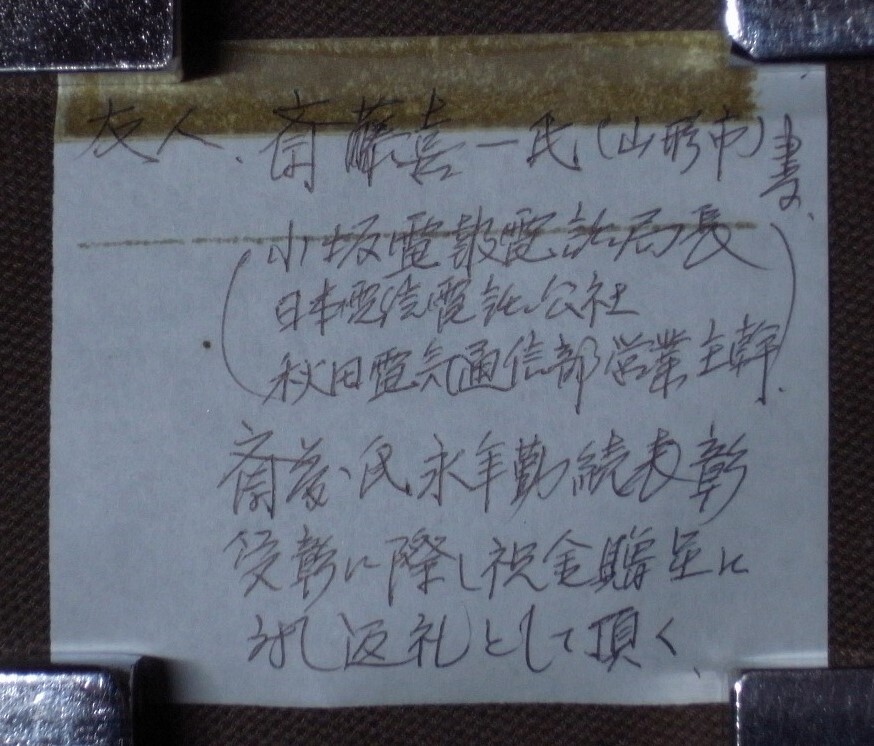 友人、斎藤喜一氏(山形市)書、
(小坂電報電話局長
日本電信電話公社
秋田電気通信部営業主幹)
斎藤氏永年勤続表彰
受彰に際し祝金贈呈に
対し返礼として頂く、